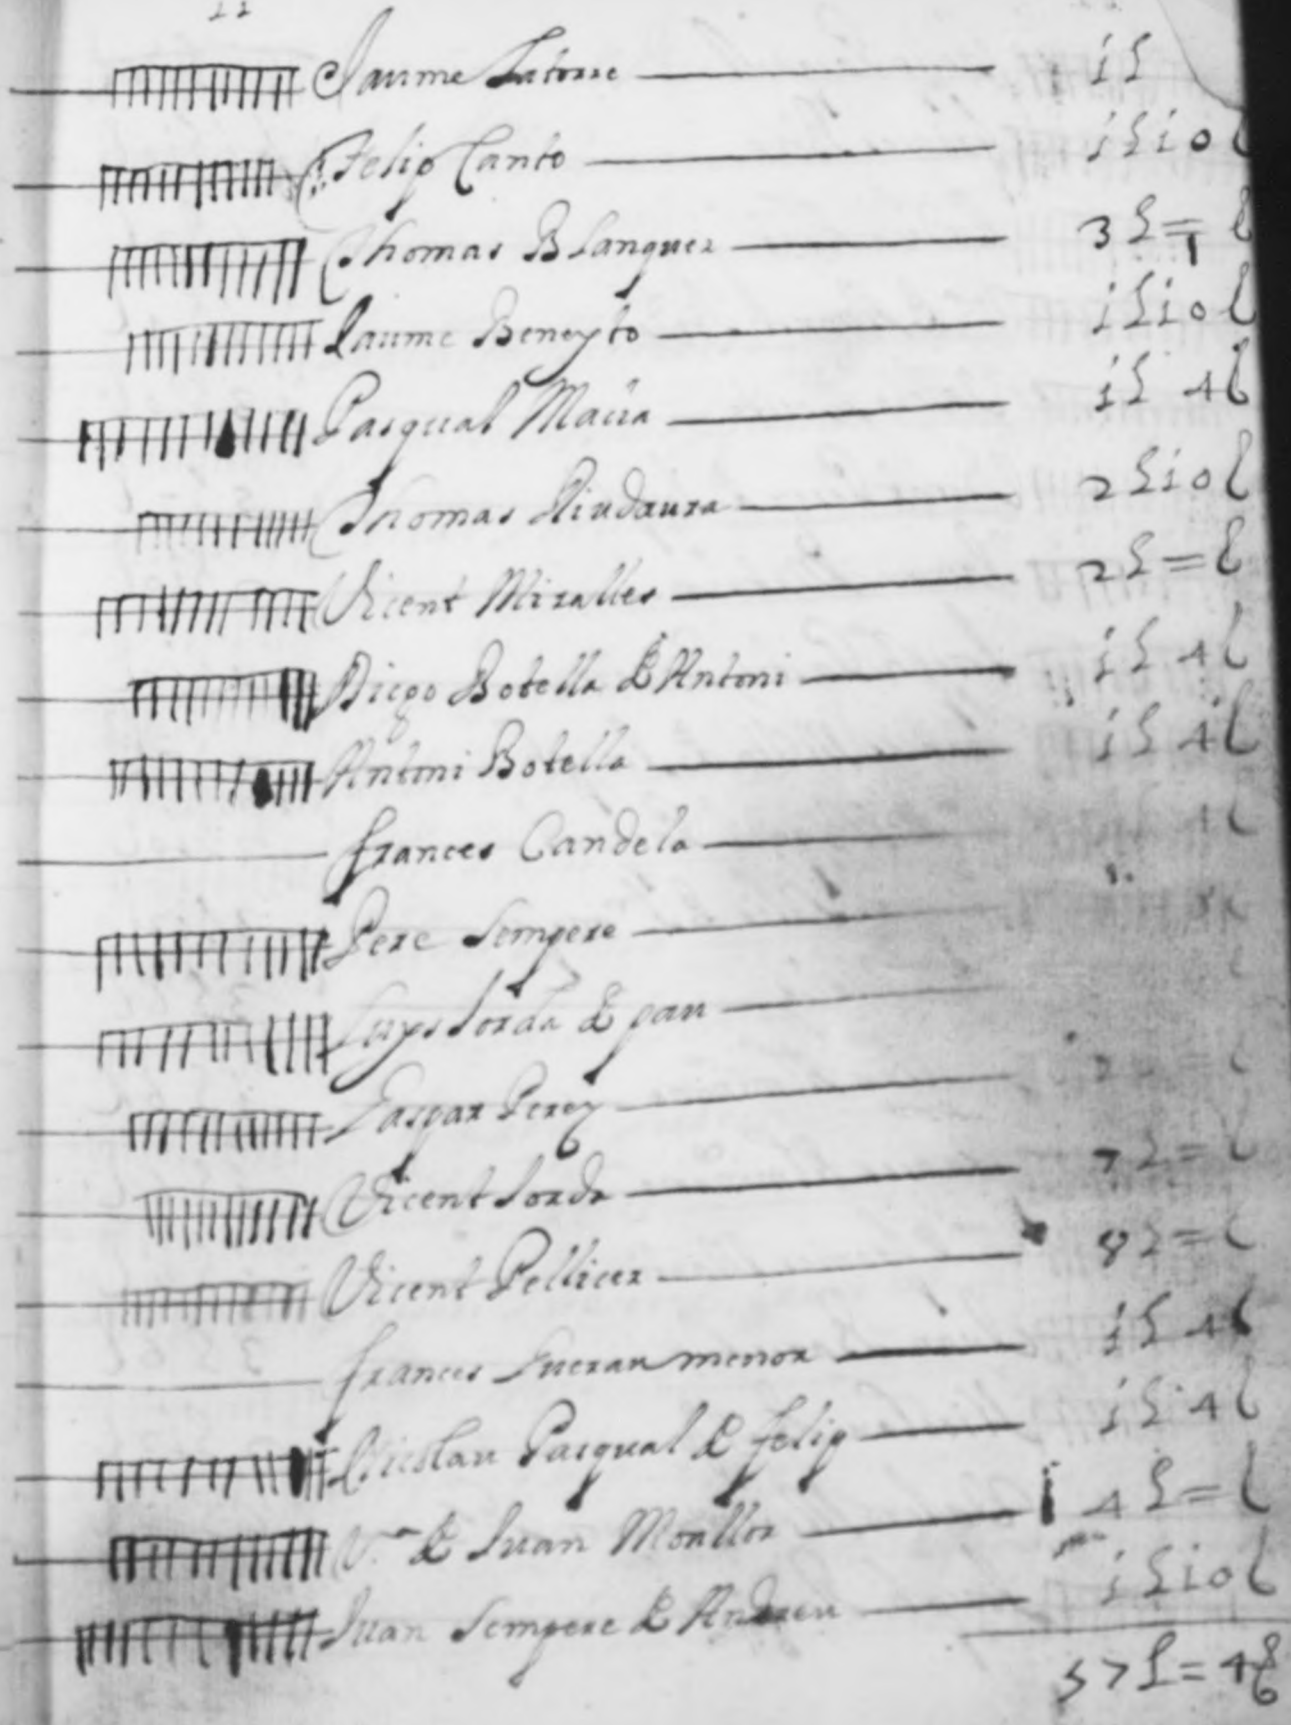 Jaume Latorre 1 L
Felip Canto 1 L 10 l
Thomas Blanquer 3 L = l
Jaume Beneyto 1 L 10 l
Pasqual Macia 1 L 4 l
Thomas Riudaura 2 L 10 l
Vicent Miralles 2 L = l
Diego Botella de Antoni 1 L 4 l
Antoni Botella 1 L 4 l
frances Candela 4 l
Pere Sempere
Luys Jorda de pau
Gaspar Perez 2 = l
Vicent Jorda 7 L = l
Vicent Pellicer 8 L = l
frances menor 1 L 4 l
Nicolau Pasqual de felip 1 L 4 l
V.ª de Juan Monllor 4 L = l
Juan Sempere de Andreu 1 L 10 l
57 L = 4 l